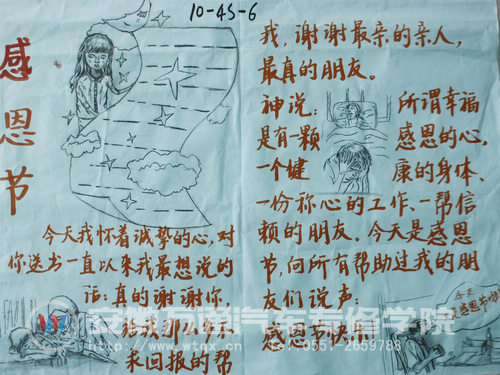 10-45-6
感恩节
今天我怀着诚挚的心,对
你送出一直以来我最想说的
话:真的谢谢你,
给我那么多不
来回报的帮
我,谢谢最亲的亲人,
最真的朋友。
神说: 所谓幸福
是有一颗 感恩的心,
一个健 康的身体、
一份称心的工作、一帮信
赖的朋友。今天是感恩
节,向所有帮助过我的朋
友们说声:
感恩节快乐
今天
是感恩节
www.wtqx.cn
0551-2659788